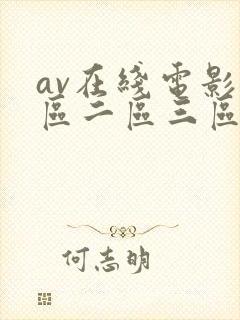 av在綫電影
區二區三區
何志明